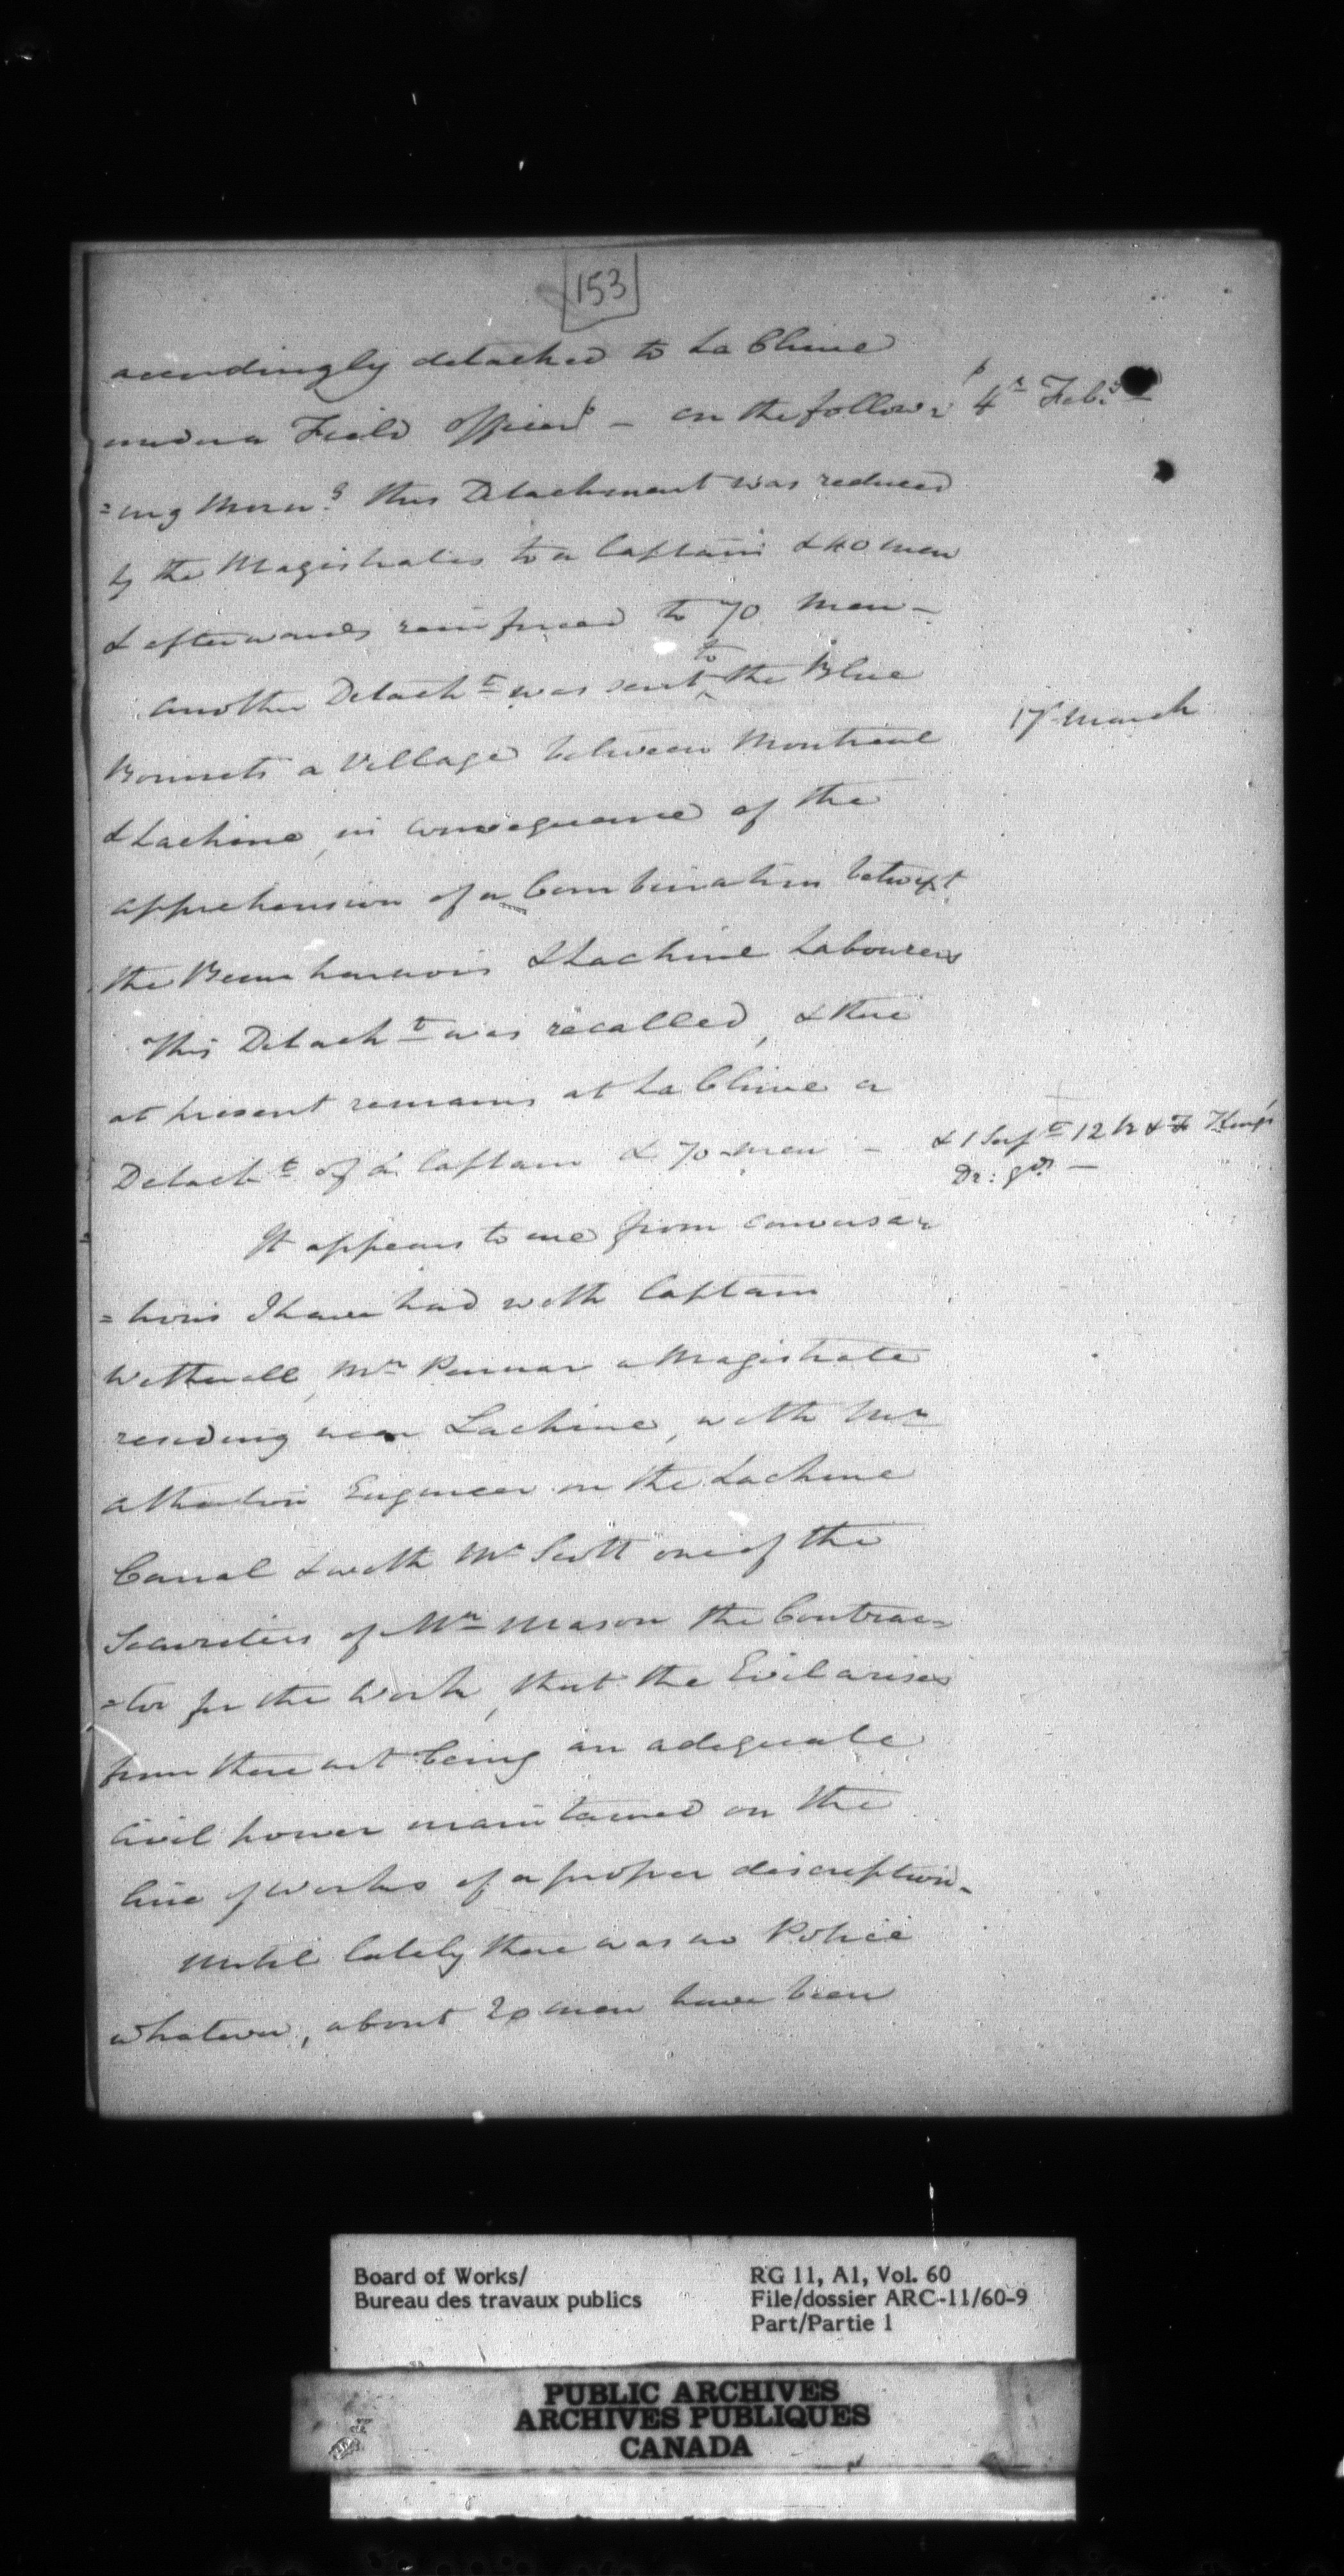 153
accordingly detached to La Chine
under a Field Officer – on the follow=
4th Feby
=ing Morng this Detachment was reduced
by the Magistrates to a Captain & 40 men
& afterwards reinforced to 70 men –
another Detacht was sent to the Blue
17 March
Bonnets a Village between Montreal
& Lachine, in consequence of the
apprehension of a Combination betwixt
the Beauharnois & Lachine Labourers
This Detacht was recalled, & there
at present remains at La Chine a
Detacht of a Captain & 70 men –
& 1 Serjt 12 R & F King's
Dr: Gds –
It appears to me from conversa=
=tions I have had with Captain
Wetherall, Mr Penner a Magistrate
residing near Lachine, with Mr
Atherton Engineer on the Lachine
Canal & with Mr Scott one of the
Securities of Mr Mason the Contrac=
=tor for the Work, that the Evil arises
from there not being an adequate
Civil power maintained on the
line of works of a proper description –
Until lately there was no Police
whatever, about 20 men have been
Board of Works/
Bureau des travaux publics
RG 11, A1, Vol. 60
File/dossier ARC-11/60-9
Part/Partie 1
PUBLIC ARCHIVES
ARCHIVES PUBLIQUES
CANADA